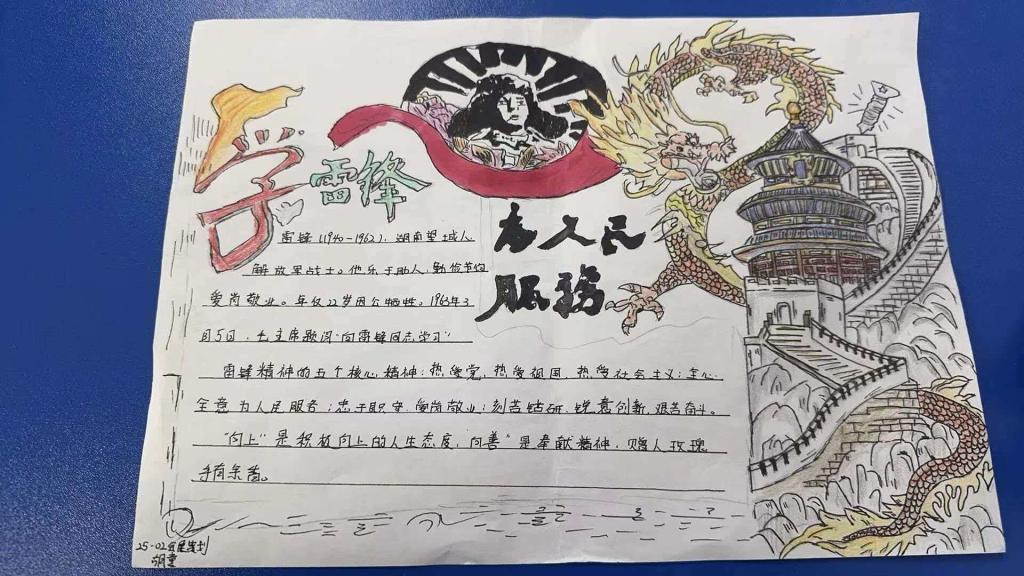 学雷锋
为人民
服務
雷锋(1940-1962),湖南望城人
解放军战士。他乐于助人,勤俭节约
爱岗敬业。年仅22岁因公牺牲。1963年3
月5日,毛主席题词"向雷锋同志学习"
雷锋精神的五个核心精神:热爱党,热爱祖国,热爱社会主义;全心
全意为人民服务;忠于职守,爱岗敬业;刻苦钻研,锐意创新,艰苦奋斗。
"向上"是积极向上的人生态度,向善"是奉献精神,赠人玫瑰
手有余香。
25-02